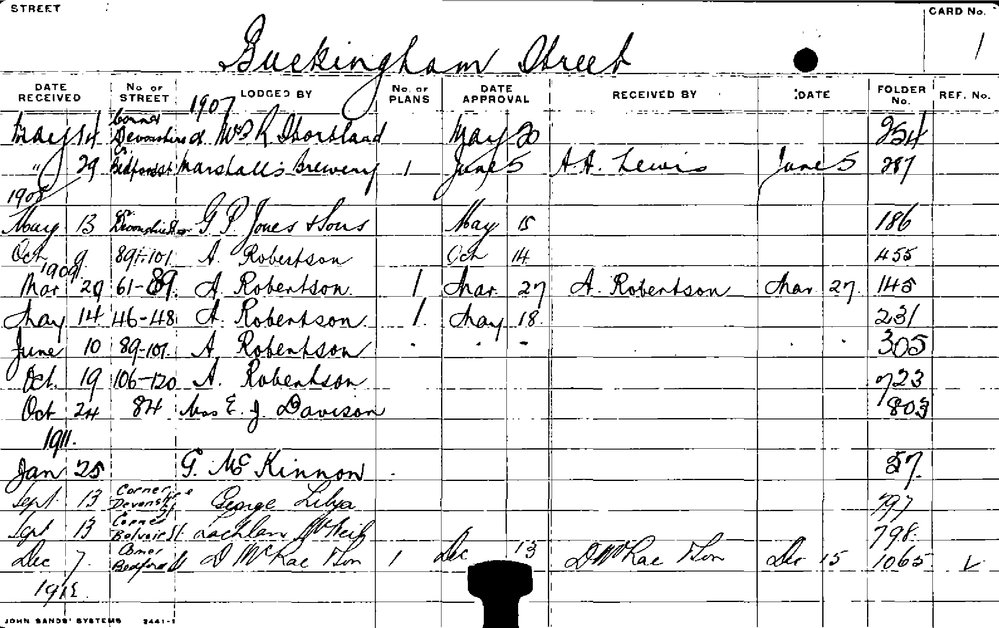 STREET
CARD No.
1
Buckingham Street
DATE RECEIVED No. OF STREET LODGED BY No. OF PLANS DATE APPROVAL RECEIVED BY DATE FOLDER No. REF. No.
1907
May 14 Corner Devonshire McR Thorsland May 20 254
" 29 Cr Bedford St Marshall's Brewery 1 June 5 A. A. Lewis June 5 287
1908
May 13 Cr Devonshire G P Jones & Sons May 15 186
Oct 9 89-101 A. Robertson Oct 14 455
1909
Mar 29 61-89 A. Robertson 1 Mar 27 A. Robertson Mar 27. 145
May 14 46-48 A. Robertson 1 May 18 231
June 10 89-101 A. Robertson 305
Oct. 19 106-120 A. Robertson 723
Oct 24 84 Mrs E. J. Davison 803
1911.
Jan 25 G. McKinnon 57.
Sept. 13 Corner Devonshire George Libya 797
Sept 13 Corner Belvoir St. Lachlan McNeil 798.
Dec 7. Corner Bedford St D McRae & Son 1 Dec 13 D McRae & Son Dec 15 1065
JOHN SANDS' SYSTEMS 2441-1